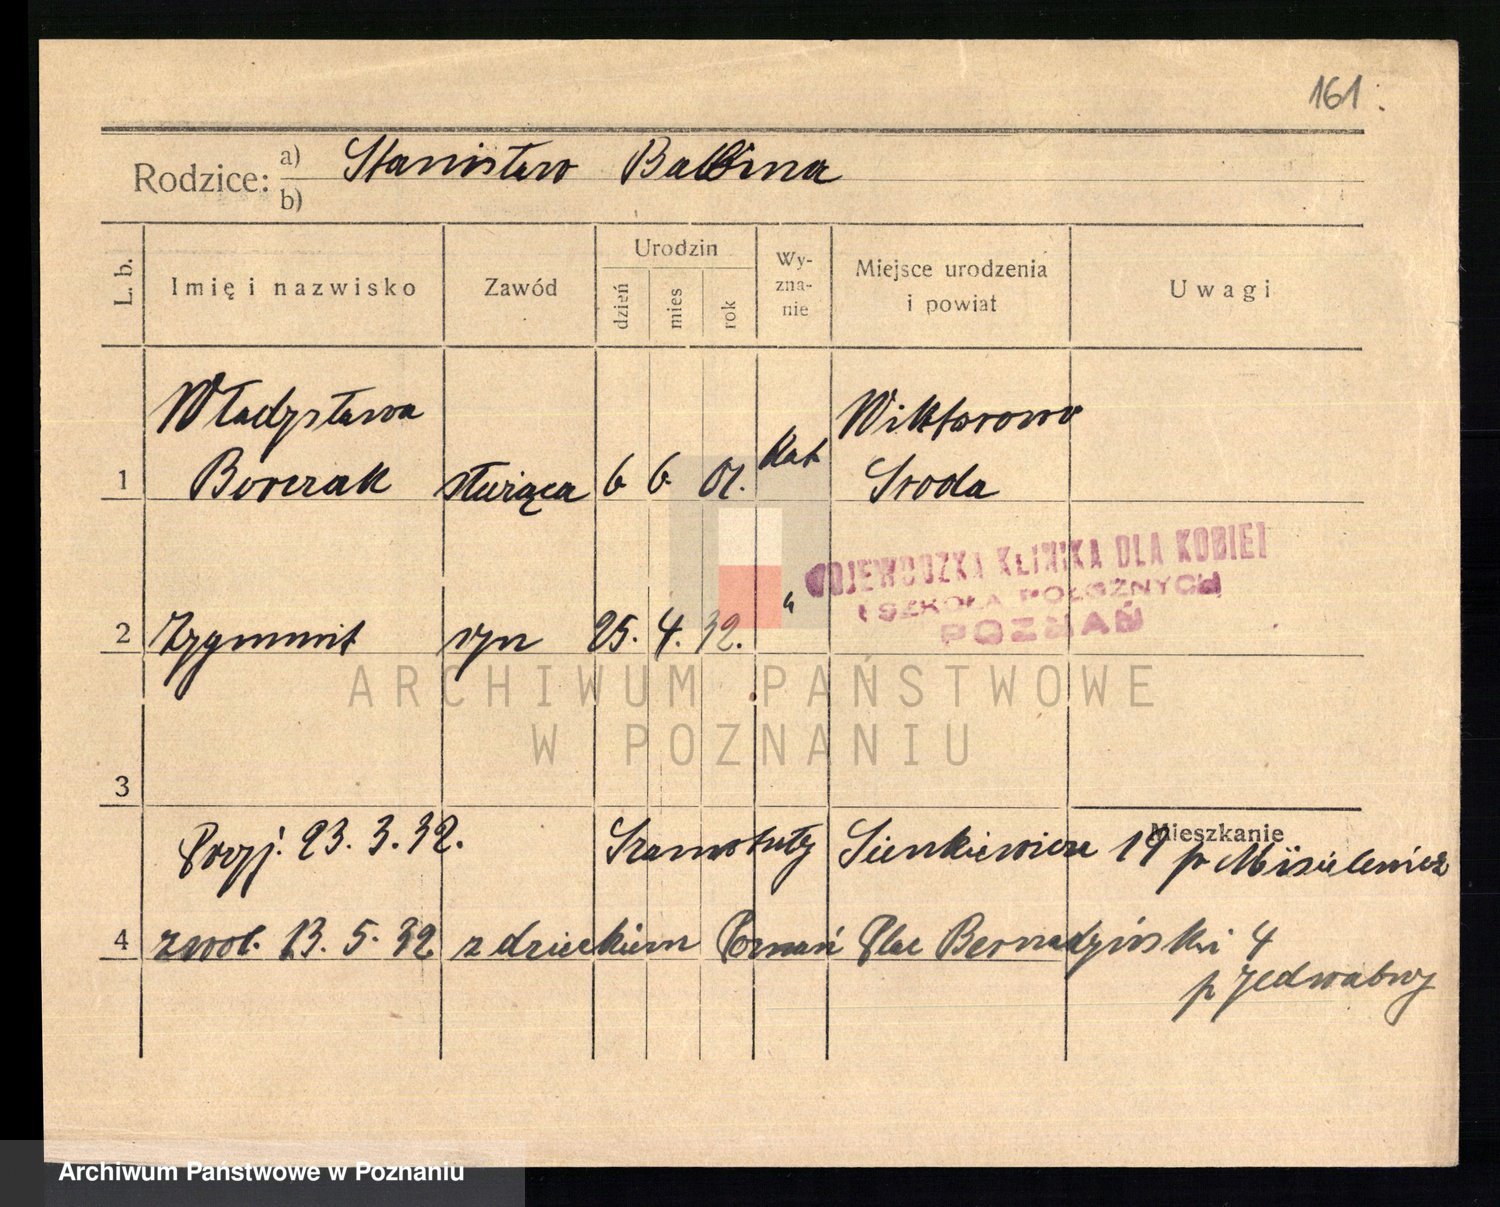 161.
Rodzice: a) Stanisław Balbina
b)
L. b. Imię i nazwisko Zawód Urodzin dzień mies rok Wy-zna-nie Miejsce urodzenia i powiat Uwagi
Władysława Wiktorowo
1 Borczak służąca 6 6 01. kat Środa
WOJEWÓDZKA KLINIKA DLA KOBIET
I SZKOŁA POŁOŻNYCH
POZNAŃ
2 Zygmunt syn 25. 4. 32. "
ARCHIWUM PAŃSTWOWE
W POZNANIU
3
Mieszkanie
Przyj. 23. 3. 32. Szamotuły Sienkiewicza 19 p.
4 zwol. 13. 5. 32 z dzieckiem Poznań Plac Bernadyński 4
p Jedwabny
Archiwum Państwowe w Poznaniu